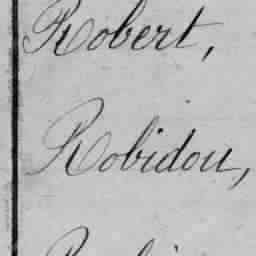 Robert,
Robidou,